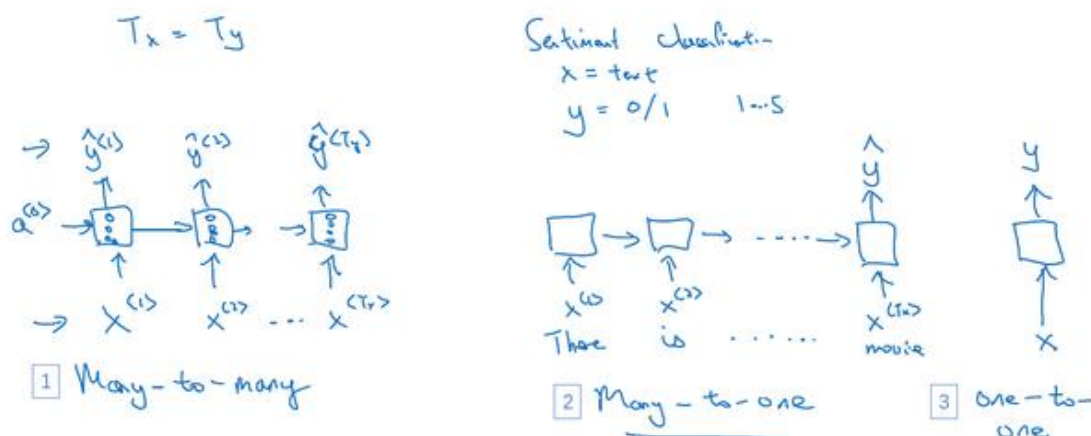 Tx = Ty
ŷ<1> ŷ<2> ŷ<Ty>
a<0>
x<1> x<2> ... x<Tx>
1 Many-to-many
Sentiment classification
x = text
y = 0/1 1...5
ŷ
.....
x<1> x<2> x<Tx>
There is ...... movie
2 Many-to-one
y
x
3 one-to-
one